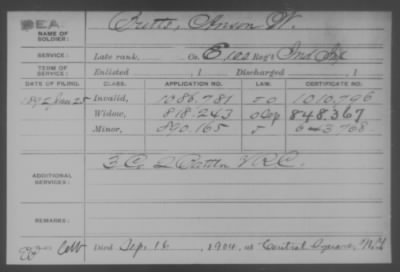 DEA.
NAME OF SOLDIER: Britts, Anson W.
SERVICE: Late rank, Co. E, 100 Reg't Ind Inf
TERM OF SERVICE: Enlisted , 1 Discharged , 1
DATE OF FILING. CLASS. APPLICATION NO. LAW. CERTIFICATE NO.
1892 Jan 25 Invalid, 1086.781 1010.796
Widow, 818.243 848.367
Minor, 890.165 643.768
ADDITIONAL SERVICES: 3. Co 2 Battn V.R.C.
REMARKS:
Died Sep. 16, 1904, at Central Square,